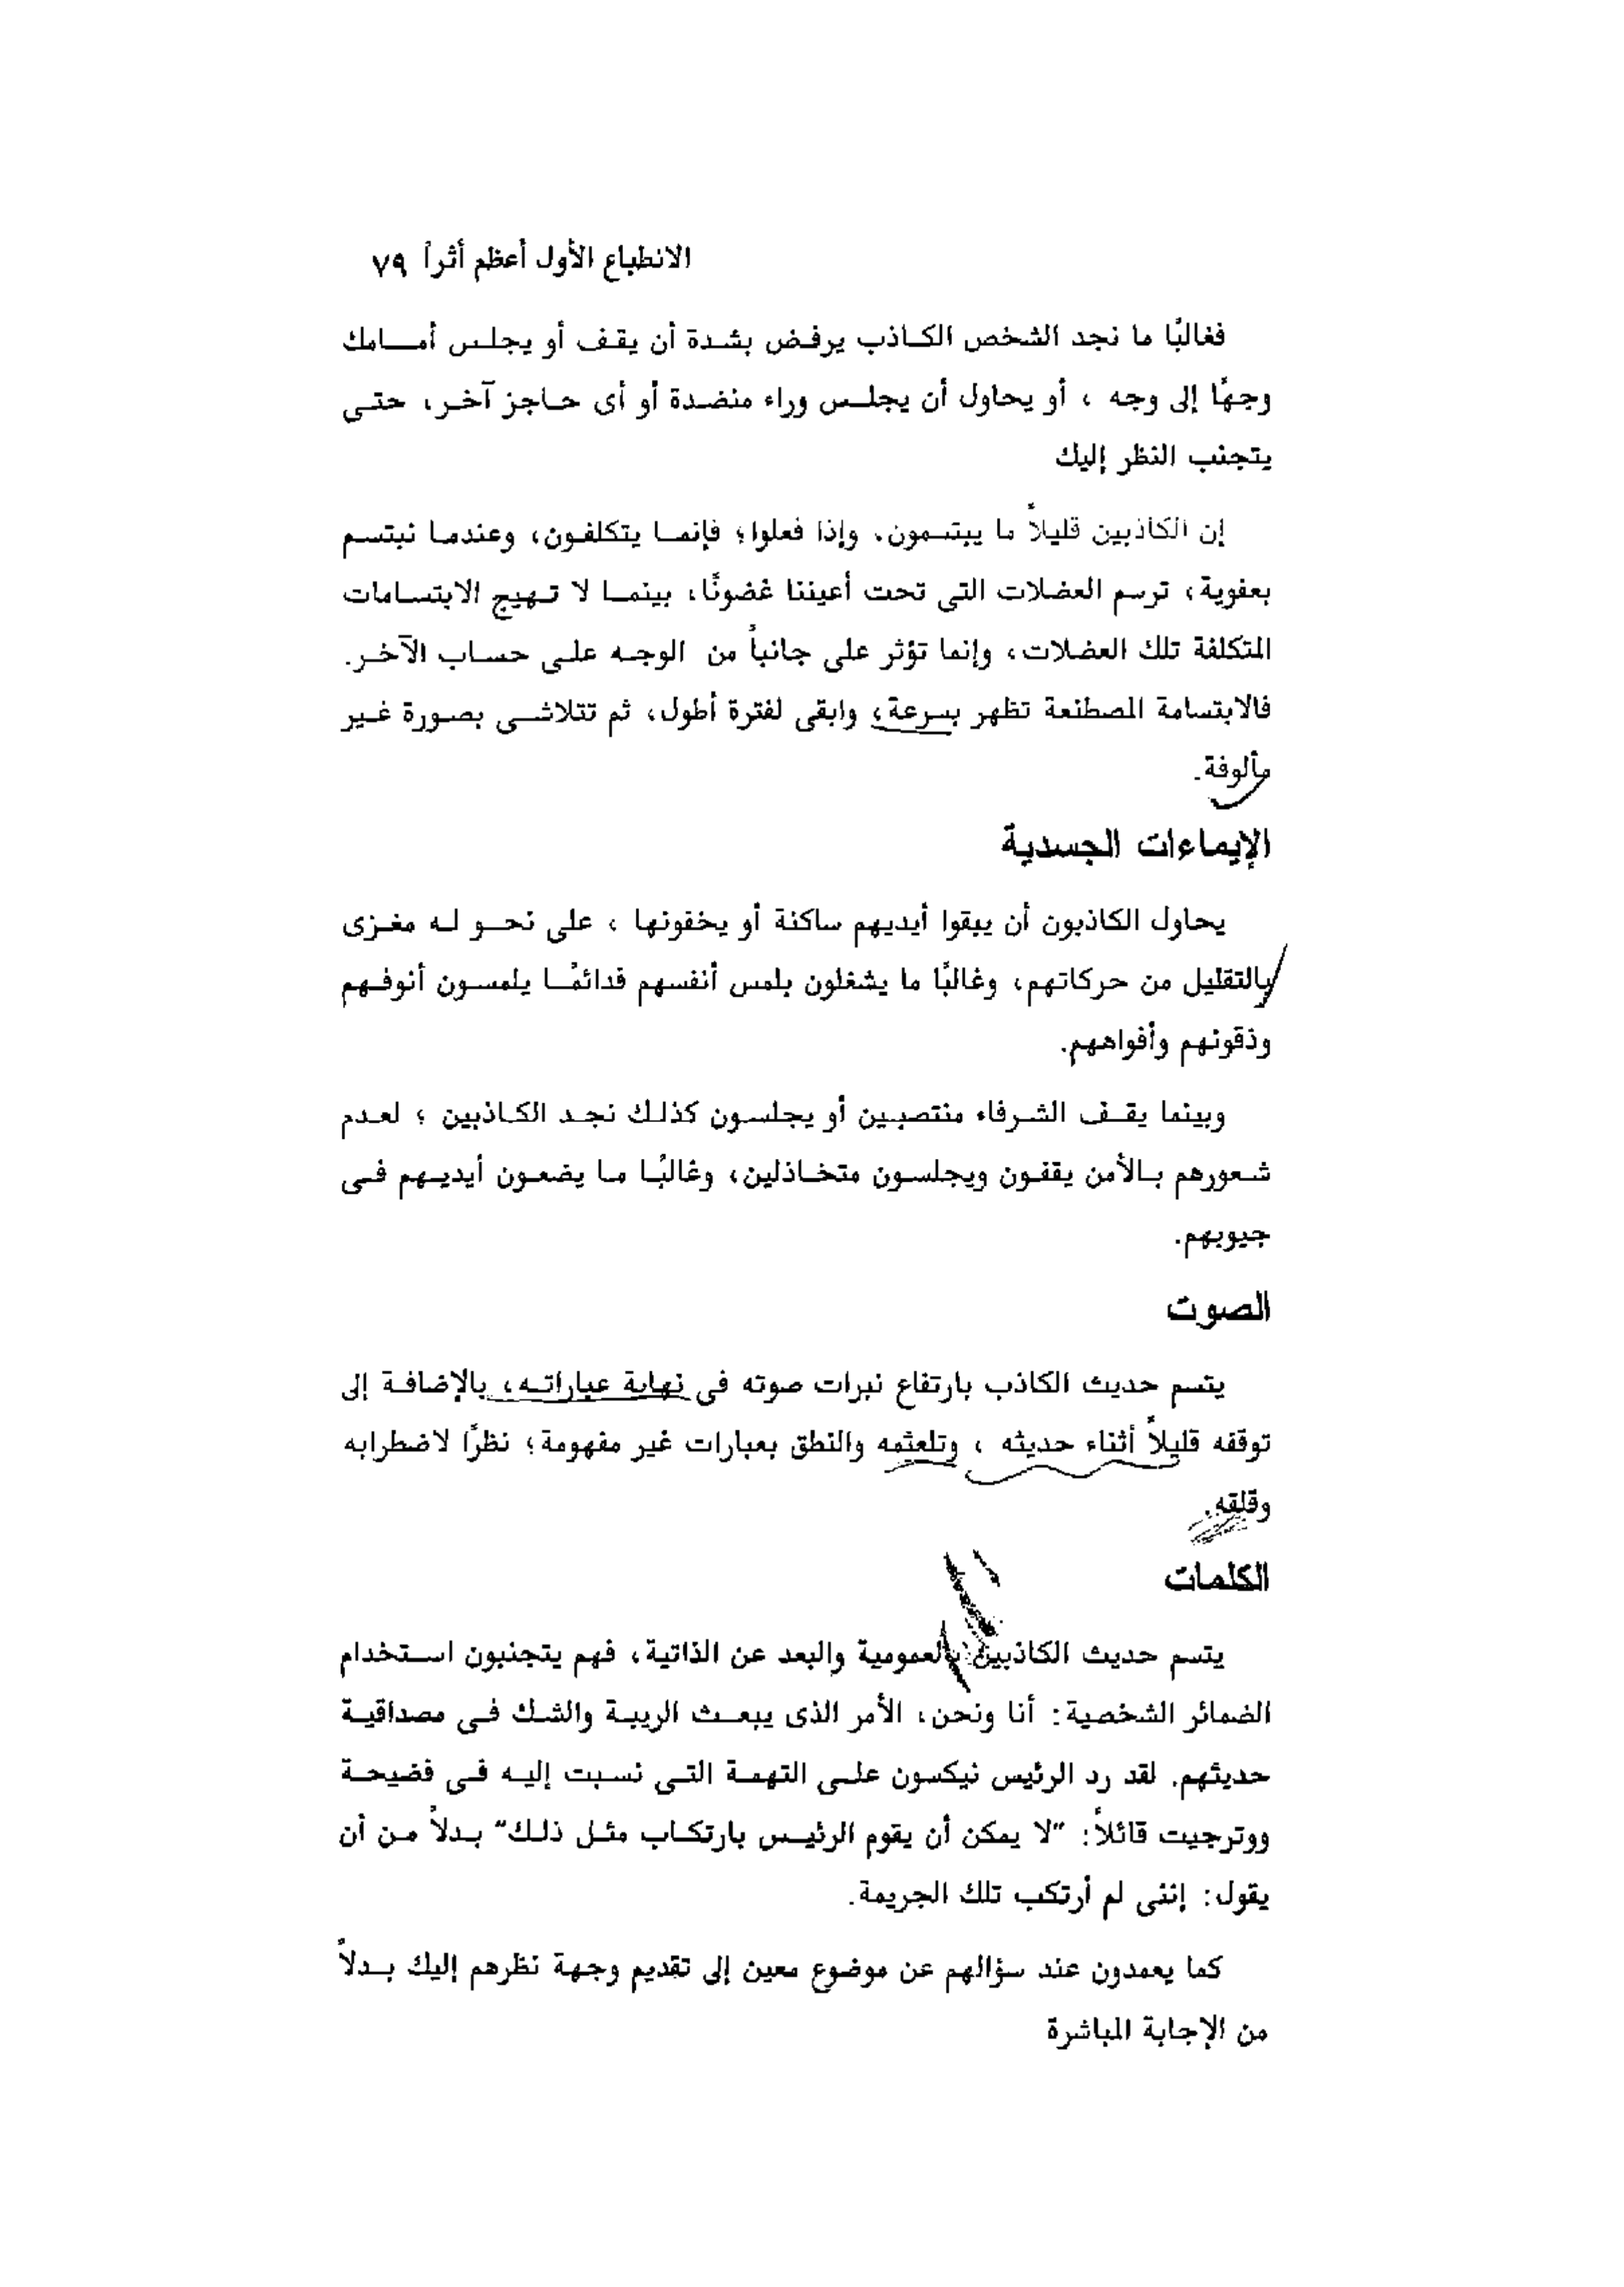 الانطباع الأول أعظم أثراً ٧٩
فغالبًا ما نجد الشخص الكاذب يرفض بشدة أن يقف أو يجلس أمامك
وجهًا إلى وجه ، أو يحاول أن يجلس وراء منضدة أو أى حاجز آخر، حتى
يتجنب النظر إليك
إن الكاذبين قليلاً ما يبتسمون، وإذا فعلوا؛ فإنما يتكلفون، وعندما نبتسم
بعفوية، ترسم العضلات التى تحت أعيننا غضونًا، بينما لا تهيج الابتسامات
المتكلفة تلك العضلات، وإنما تؤثر على جانباً من الوجه على حساب الآخر.
فالابتسامة المصطنعة تظهر بسرعة، وابقى لفترة أطول، ثم تتلاشى بصورة غير
مألوفة.
الإيماءات الجسدية
يحاول الكاذبون أن يبقوا أيديهم ساكنة أو يخفونها ، على نحو له مغزى
بالتقليل من حركاتهم، وغالبًا ما يشغلون بلمس أنفسهم فدائمًا يلمسون أنوفهم
وذقونهم وأفواههم.
وبينما يقف الشرفاء منتصبين أو يجلسون كذلك نجد الكاذبين ؛ لعدم
شعورهم بالأمن يقفون ويجلسون متخاذلين، وغالبًا ما يضعون أيديهم فى
جيوبهم.
الصوت
يتسم حديث الكاذب بارتفاع نبرات صوته فى نهاية عباراته، بالإضافة إلى
توقفه قليلاً أثناء حديثه ، وتلعثمه والنطق بعبارات غير مفهومة؛ نظرًا لاضطرابه
وقلقه.
الكلمات
يتسم حديث الكاذبين بالعمومية والبعد عن الذاتية، فهم يتجنبون استخدام
الضمائر الشخصية: أنا ونحن، الأمر الذى يبعث الريبة والشك فى مصداقية
حديثهم. لقد رد الرئيس نيكسون على التهمة التى نسبت إليه فى فضيحة
ووترجيت قائلاً: "لا يمكن أن يقوم الرئيس بارتكاب مثل ذلك" بدلاً من أن
يقول: إننى لم أرتكب تلك الجريمة.
كما يعمدون عند سؤالهم عن موضوع معين إلى تقديم وجهة نظرهم إليك بدلاً
من الإجابة المباشرة